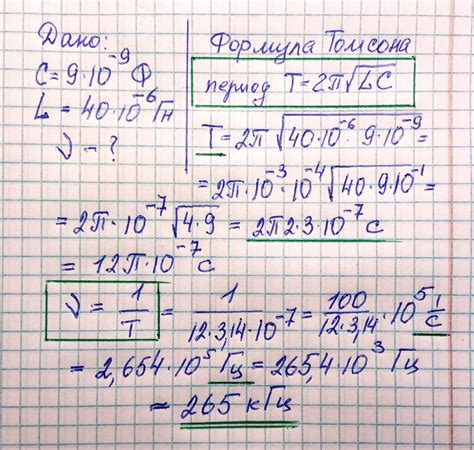 Дано:
C = 9·10⁻⁹ Ф
L = 40·10⁻⁶ Гн
ν – ?
Формула Томсона
период T = 2π√LC
T = 2π √40·10⁻⁶·9·10⁻⁹ =
= 2π·10⁻³·10⁻⁴√40·9·10⁻¹ =
= 2π·10⁻⁷ √4·9 = 2π2·3·10⁻⁷ с
= 12π·10⁻⁷ с
ν = 1/T = 1/12·3,14·10⁻⁷ = 100/12·3,14 · 10⁵ 1/с
= 2,654·10⁵ Гц = 265,4·10³ Гц
= 265 кГц